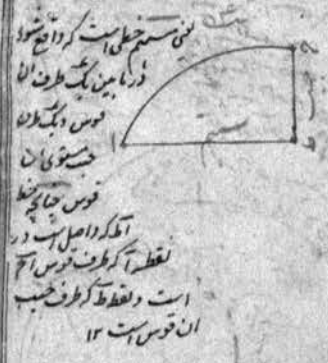 یعنی سهم خطی است که واقع شود
در مابین یک طرف آن
قوس و یک طرف
جیب مستوی آن
قوس چنانچه خط
اط که واصل است در
نقطه آ که طرف قوس اح
است و نقطه ط که طرف جیب
آن قوس است ۱۲
سهم